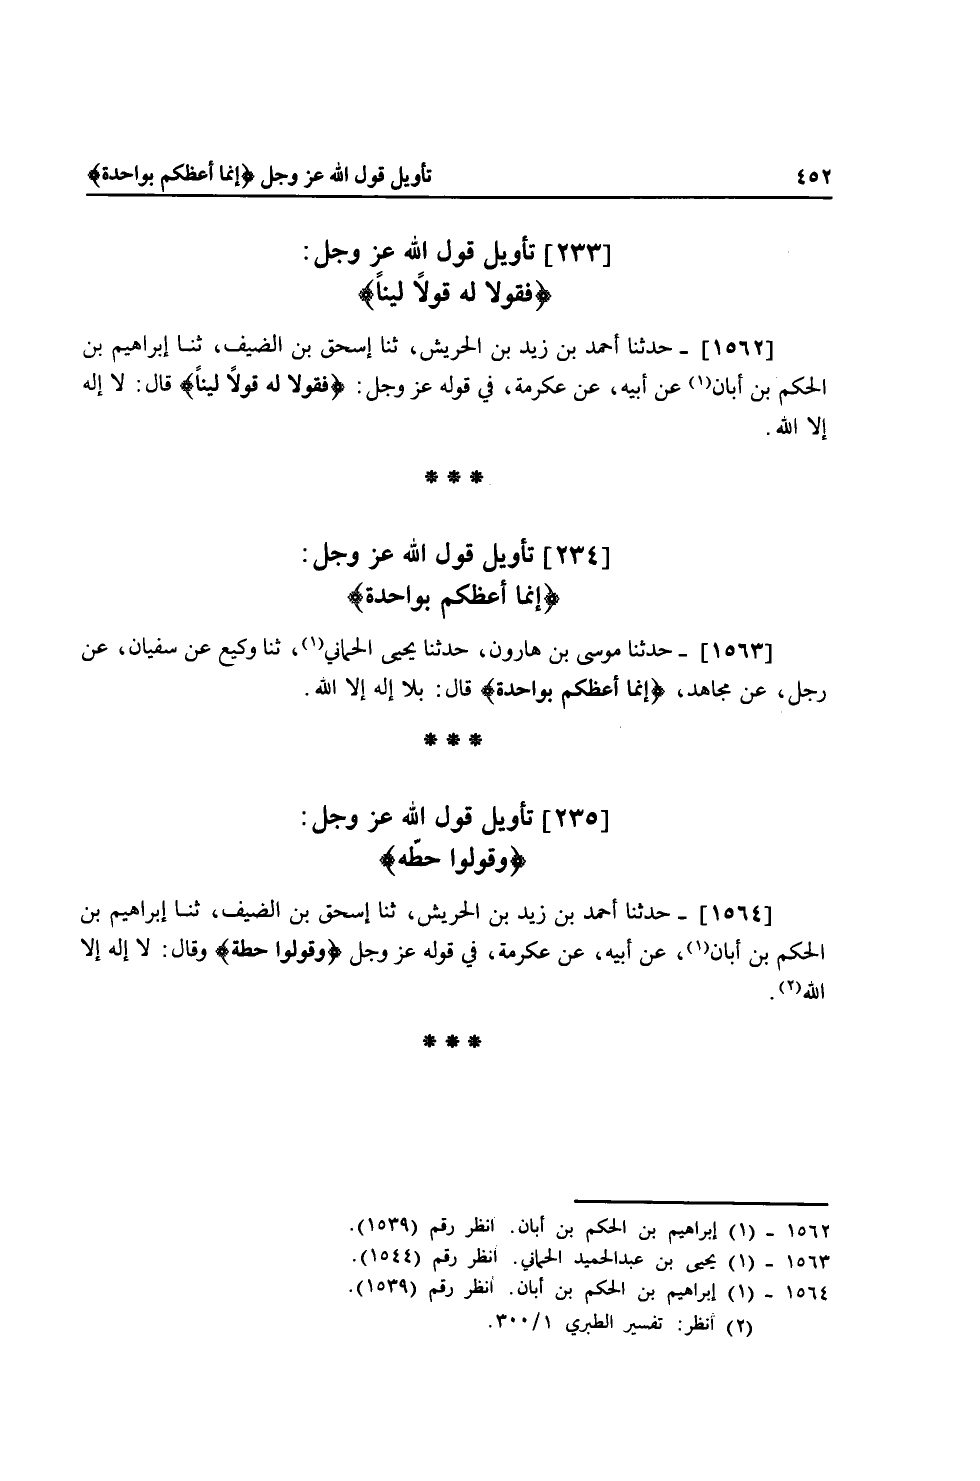 ٤٥٢ تأويل قول الله عز وجل ﴿إنما أعظكم بواحدة﴾
[٢٣٣] تأويل قول الله عز وجل :
﴿فقولا له قولاً ليناً﴾
[١٥٦٢] ـ حدثنا أحمد بن زيد بن الحريش، ثنا إسحق بن الضيف، ثنا إبراهيم بن
الحكم بن أبان(١) عن أبيه، عن عكرمة، في قوله عز وجل : ﴿فقولا له قولاً ليناً﴾ قال: لا إله
إلا الله .
* * *
[٢٣٤] تأويل قول الله عز وجل :
﴿إنما أعظكم بواحدة﴾
[١٥٦٣] ـ حدثنا موسى بن هارون، حدثنا يحيى الحماني(١)، ثنا وكيع عن سفيان، عن
رجل، عن مجاهد، ﴿إنما أعظكم بواحدة﴾ قال: بلا إله إلا الله .
* * *
[٢٣٥] تأويل قول الله عز وجل :
﴿وقولوا حطّه﴾
[١٥٦٤] ـ حدثنا أحمد بن زيد بن الحريش، ثنا إسحق بن الضيف، ثنا إبراهيم بن
الحكم بن أبان(١)، عن أبيه، عن عكرمة، في قوله عز وجل ﴿وقولوا حطة﴾ وقال: لا إله إلا
الله(٢).
* * *
١٥٦٢ ـ (١) إبراهيم بن الحكم بن أبان. انظر رقم (١٥٣٩).
١٥٦٣ ـ (١) يحيى بن عبدالحميد الحماني. أنظر رقم (١٥٤٤).
١٥٦٤ ـ (١) إبراهيم بن الحكم بن أبان. أنظر رقم (١٥٣٩).
(٢) أنظر: تفسير الطبري ٣٠٠/١.